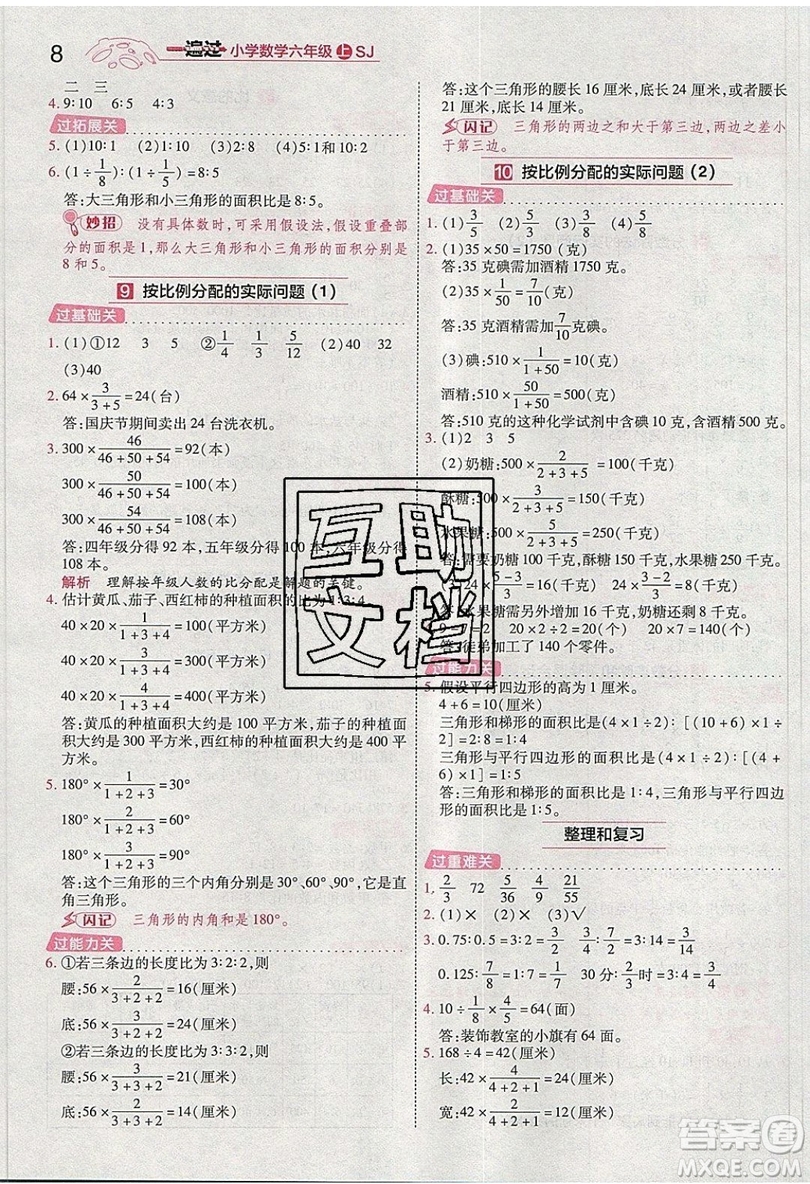 8 一遍过 小学数学六年级 上 SJ
二 三
4. 9∶10 6∶5 4∶3
过拓展关
5. (1)10∶1 (2)9∶10 (3)1∶9 (4)10∶9
6. (1÷1/8)∶(1÷1/5)=8∶5
答:大三角形和小三角形的面积比是8∶5。
妙招 没有具体数时,可采用假设法,假设重叠部
分的面积是1,那么大三角形和小三角形的面积分别是
8和5。
9 按比例分配的实际问题(1)
过基础关
1. (1)①12 3 5 ②1/4 1/3 5/12 (2)40 32
(3)40
2. 64×3/(3+5)=24(台)
答:国庆节期间卖出24台洗衣机。
3. 300×46/(46+50+54)=92(本)
300×50/(46+50+54)=100(本)
300×54/(46+50+54)=108(本)
答:四年级分得92本,五年级分得100本,六年级分得
108本。
解析 理解按年级人数的比分配是解题的关键。
4. 估计黄瓜、茄子、西红柿的种植面积的比为1∶3∶4
40×20×1/(1+3+4)=100(平方米)
40×20×3/(1+3+4)=300(平方米)
40×20×4/(1+3+4)=400(平方米)
答:黄瓜的种植面积大约是100平方米,茄子的种植面积
大约是300平方米,西红柿的种植面积大约是400平
方米。
5. 180°×1/(1+2+3)=30°
180°×2/(1+2+3)=60°
180°×3/(1+2+3)=90°
答:这个三角形的三个内角分别是30°、60°、90°,它是直
角三角形。
闪记 三角形的内角和是180°。
过能力关
6. ①若三条边的长度比为3∶2∶2,则
腰:56×2/(3+2+2)=16(厘米)
底:56×3/(3+2+2)=24(厘米)
②若三条边的长度比为3∶3∶2,则
腰:56×3/(3+3+2)=21(厘米)
底:56×2/(3+3+2)=14(厘米)
答:这个三角形的腰长16厘米,底长24厘米或腰长
21厘米,底长14厘米。
闪记 三角形的两边之和大于第三边,两边之差小
于第三边。
10 按比例分配的实际问题(2)
过基础关
1. (1)3/5 (2)2/5 (3)3/5 (4)5/8
2. (1)35×50=1750(克)
答:35克碘需加酒精1750克。
(2)35×1/50=7/10(克)
答:35克酒精需加7/10克碘。
(3)碘:510×1/(1+50)=10(克)
酒精:510×50/(1+50)=500(克)
答:510克的这种化学试剂中含碘10克,含酒精500克。
3. (1)2 3 5
(2)奶糖:500×2/(2+3+5)=100(千克)
酥糖:500×3/(2+3+5)=150(千克)
水果糖:500×5/(2+3+5)=250(千克)
答:需要奶糖100千克,酥糖150千克,水果糖250千克。
÷3=20(千克)
答:水果糖需另外加20千克,奶糖还剩8千克。
20÷1×7=140(个)
答:徒弟加工了140个零件。
过能力关
5. 假设平行四边形的高为1厘米。
4+6=10(厘米)
三角形和梯形的面积比是(4×1÷2)∶[(10+6)
×1÷2]=2∶8=1∶4
三角形与平行四边形的面积比是(4×1÷2)∶[(4+
6)×1]=1∶5
答:三角形和梯形的面积比是1∶4,三角形与平行四边形
的面积比是1∶5。
整理和复习
过重难关
1. 2/3 72 5/9 4/5 21/55
2. (1)× (2)× (3)√
3. 0.75∶0.5=3∶2 2/3∶1/7=14∶3 3∶14=3/14
0.125∶7/8=1/7 30分∶2/3时=3∶4
4. 10÷1/8×4/5=64(面)
答:装饰教室的小旗有64面。
5. 168÷4=42(厘米)
长:42×4/(4+2+1)=24(厘米)
宽:42×2/(4+2+1)=12(厘米)
互助
文档
答案圈
MXQE.COM